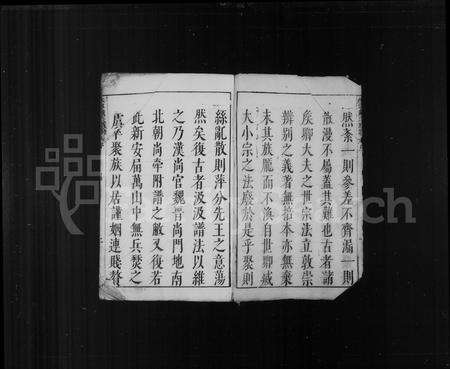 然紊一則參差不齊漏一則
散漫不屬蓋其難也古者諸
侯卿大夫之世宗法立敦崇
辨别之義著無俗本亦無棄
末其族龎而不渙自世卿滅
大小宗之法廢於是乎聚則
絲亂散則萍分先王之意蕩
然矣復古者汲汲譜法以維
之乃漢尚官魏晉尚門地南
北朝尚牵附譜之敝又復若
此新安居萬山中無兵燹之
虞乎聚族以居謹姻連賤贅